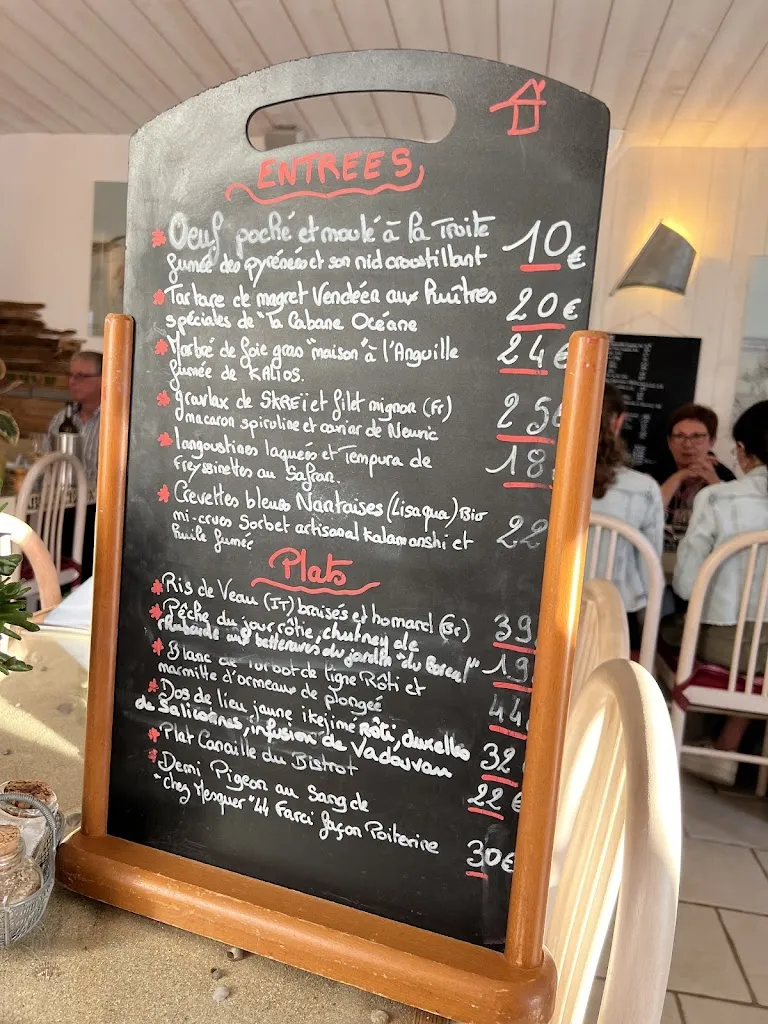 ENTREES
Oeuf poché et moulé à la Truite 10€
fumée des pyrénées et son nid croustillant
Tartare de magret Vendéen aux Huîtres 20€
spéciales de "la Cabane Océane
Marbré de foie gras "maison" à l'Anguille 24€
fumée de KALIOS.
gravlax de SKREÏ et filet mignon (Fr) 25€
macaron spiruline et caviar de Neuvic
langoustines laquées et Tempura de 18
Freyssinettes au Safran.
Crevettes bleues Nantaises (Lisaqua) Bio
mi-crues Sorbet artisanal Kalamanshi et 22
huile fumée
Plats
Ris de Veau (IT) braisés et homard (Br) 39
Pêche du jour rôtie, chutney de
rhubarbe aux betteraves du jardin "du Boreal" 19
Blanc de Turbot de ligne Rôti et
marmitte d'ormeaux de plongée 44
Dos de lieu jaune ikejimé rôti, duxelles
de Salicornes, infusion de Vadouvan 32
Plat Canaille du Bistrot 22€
Demi Pigeon au Sang de
"Chez Mesquer "44 Farci façon Poitevine 30€